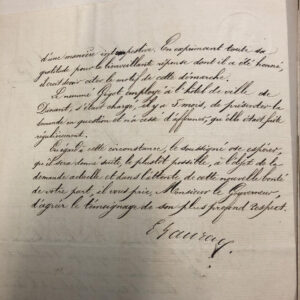 d'une manière intempestive. En exprimant toute sa
gratitude pour la bienveillante réponse dont il a été honoré,
il croit devoir citer le motif de cette démarche.
Le nommé employé à l'hôtel de ville de
Dinant, s'était chargé, il y a 5 mois, de présenter la
demande en question et n'a cessé d'affirmer, qu'elle était faite
régulièrement.
Eu égard à cette circonstance, le soussigné ose espérer,
qu'il sera donné suite, le plus tôt possible, à l'objet de la
demande actuelle et dans l'attente de cette nouvelle bonté
de votre part, il vous prie, Monsieur le Gouverneur,
d'agréer le témoignage de son plus profond respect.